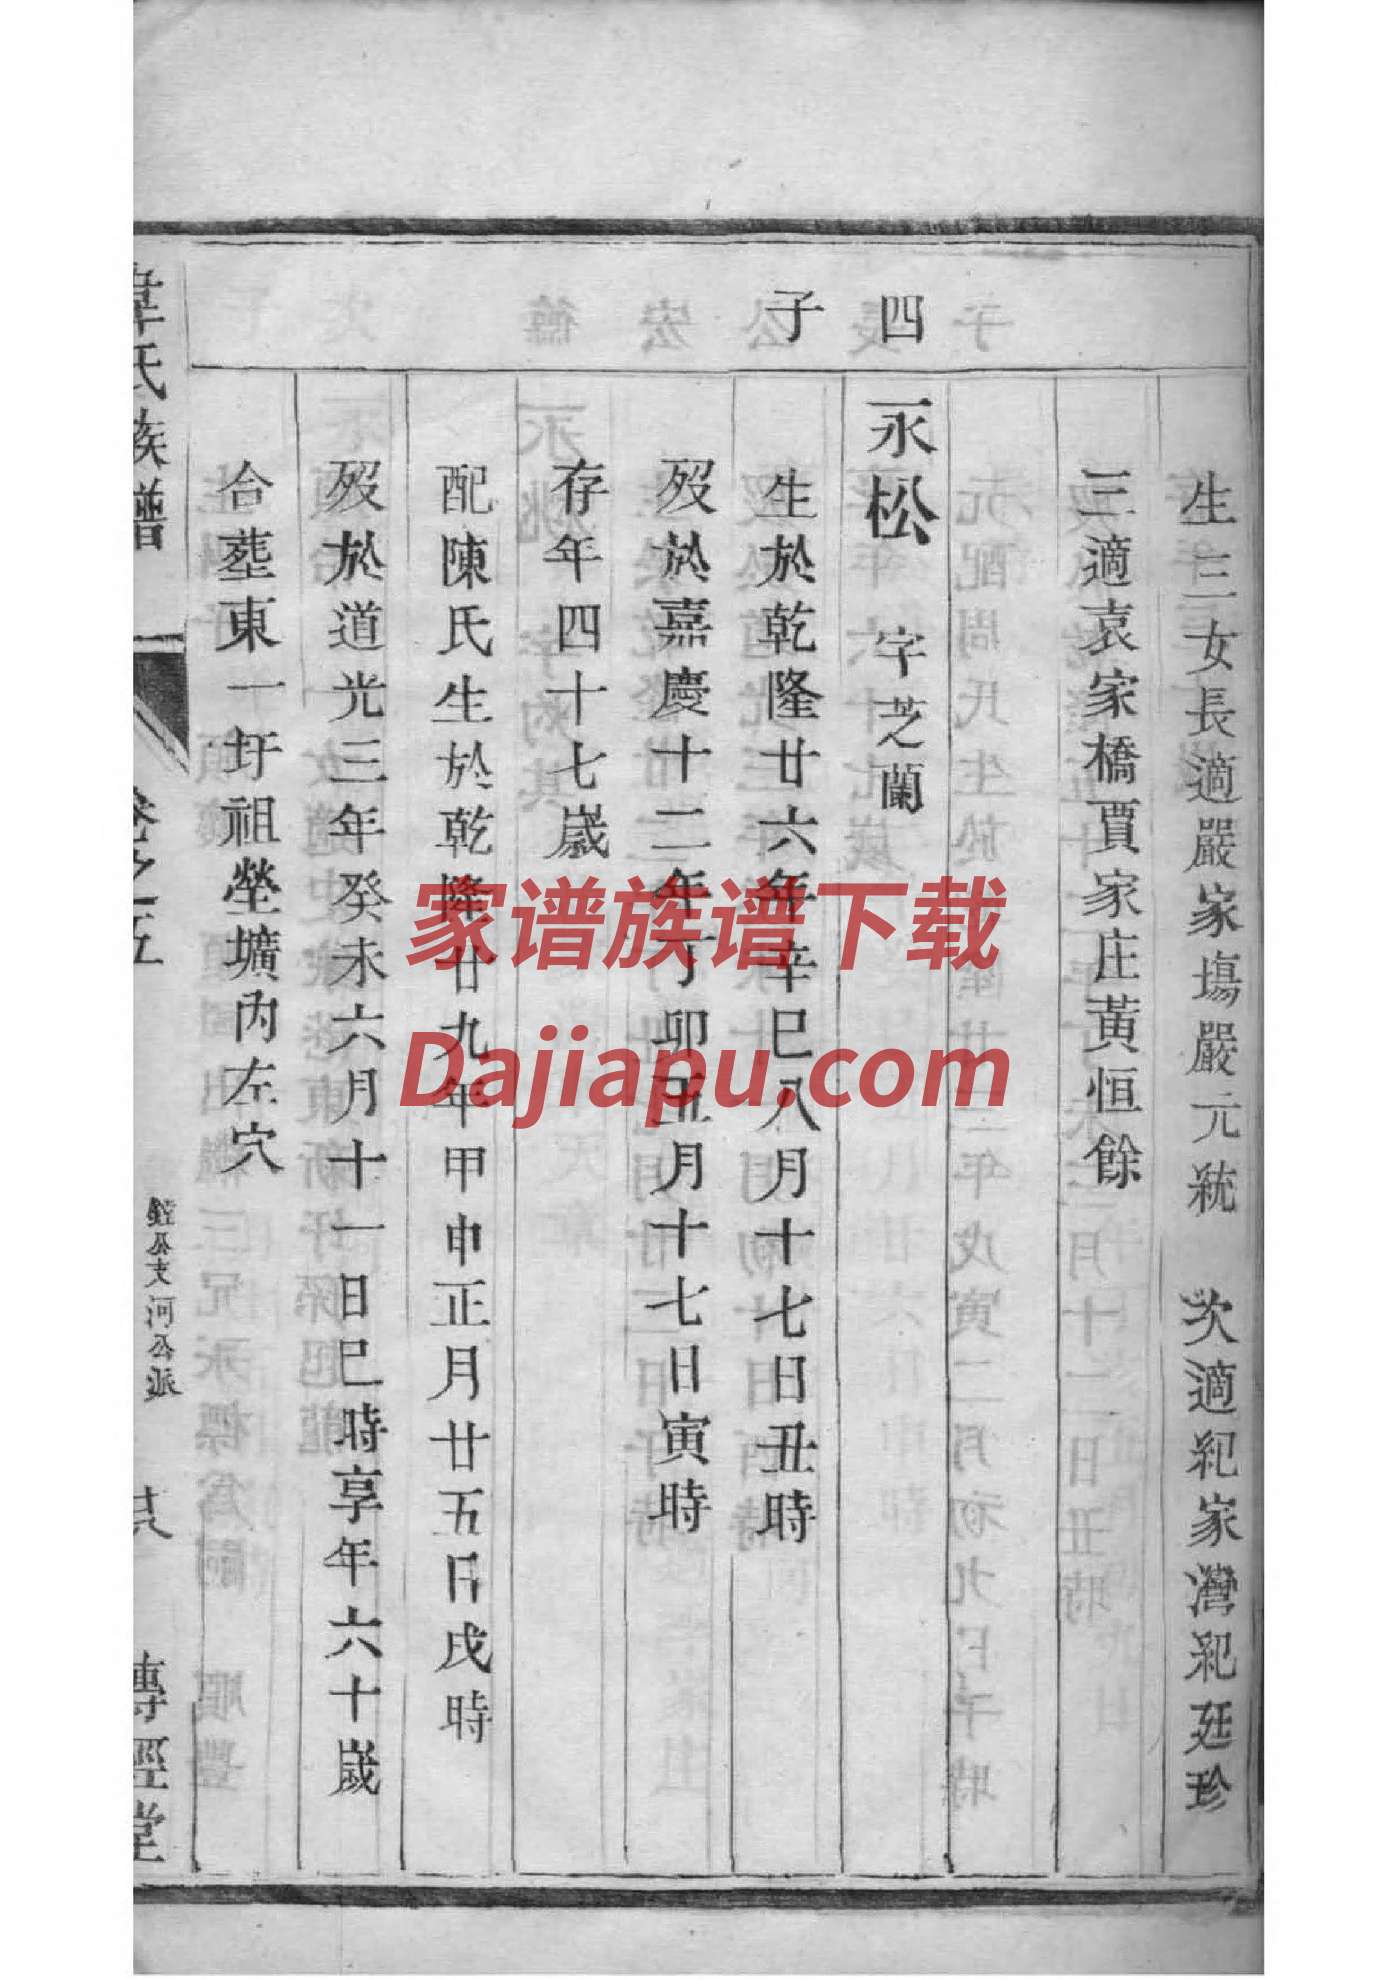 生三女長適嚴家塲嚴元統 次適紀家灣紀廷珍
三適袁家橋賈家庄黃恒餘
四子
永松 字芝蘭
生於乾隆廿六年辛巳八月十七日丑時
歿於嘉慶十二年丁卯五月十七日寅時
存年四十七歲
配陳氏生於乾隆廿九年甲申正月廿五日戌時
歿於道光三年癸未六月十一日巳時享年六十歲
合葬東一圩祖塋壙內左穴
韋氏族譜 卷之五 公支河公派 傳經堂
家谱族谱下载
Dajiapu.com